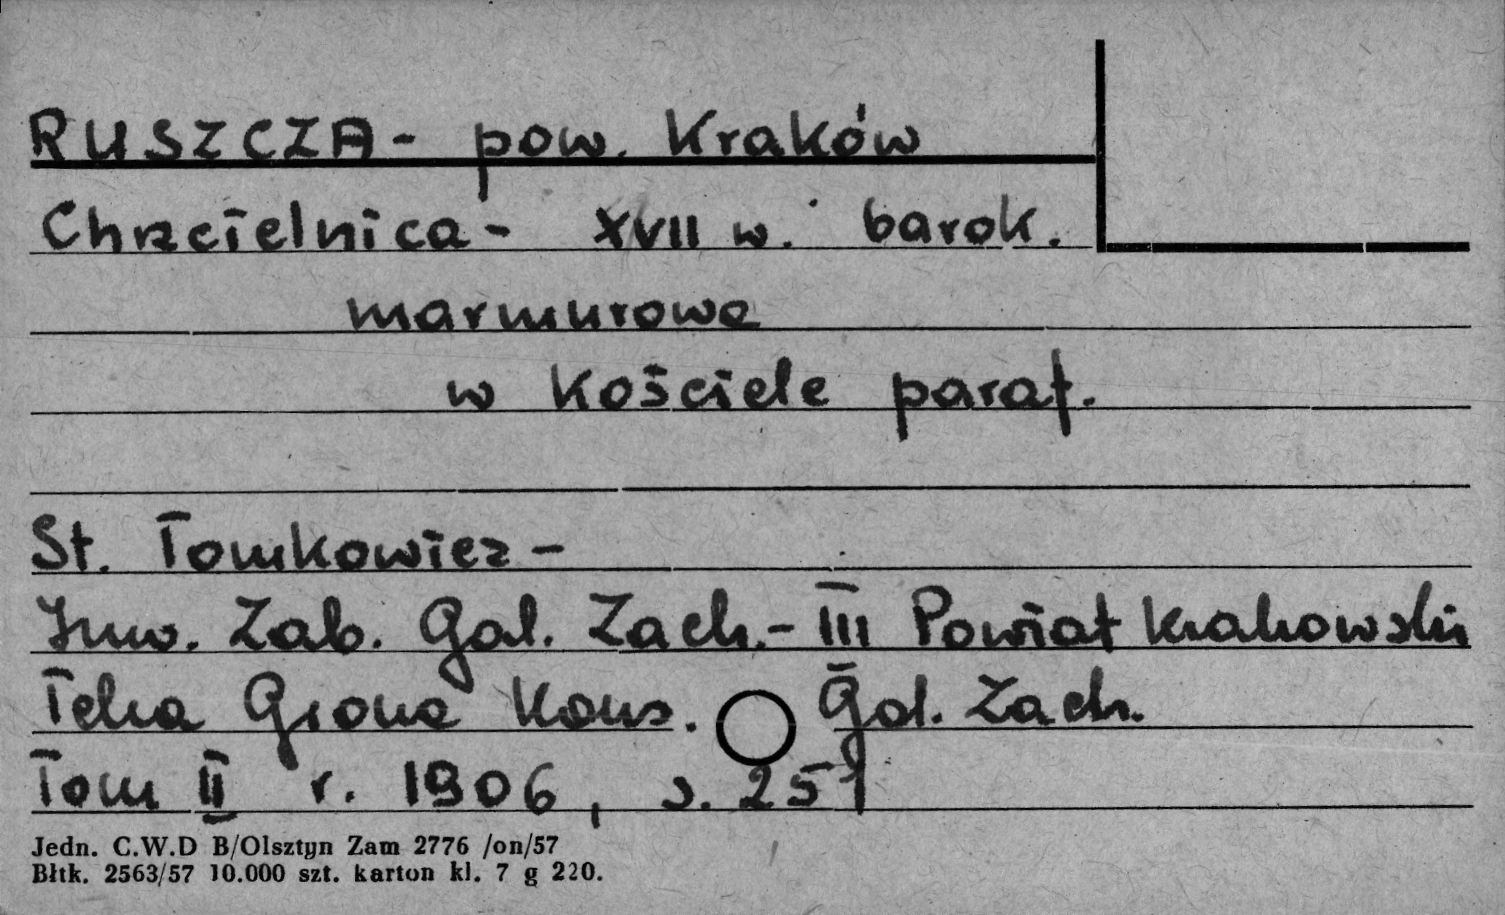 RUSZCZA - pow. Kraków
Chrzcielnica - XVII w. barok.
marmurowa
w Kościele paraf.
St. Tomkowicz -
Inw. Zab. Gal. Zach. - III Powiat Krakowski
Teka Grona Kons. Gal. Zach.
Tom II r. 1906, s. 259
Jedn. C.W.D B/Olsztyn Zam 2776 /on/57
Błtk. 2563/57 10.000 szt. karton kl. 7 g 220.